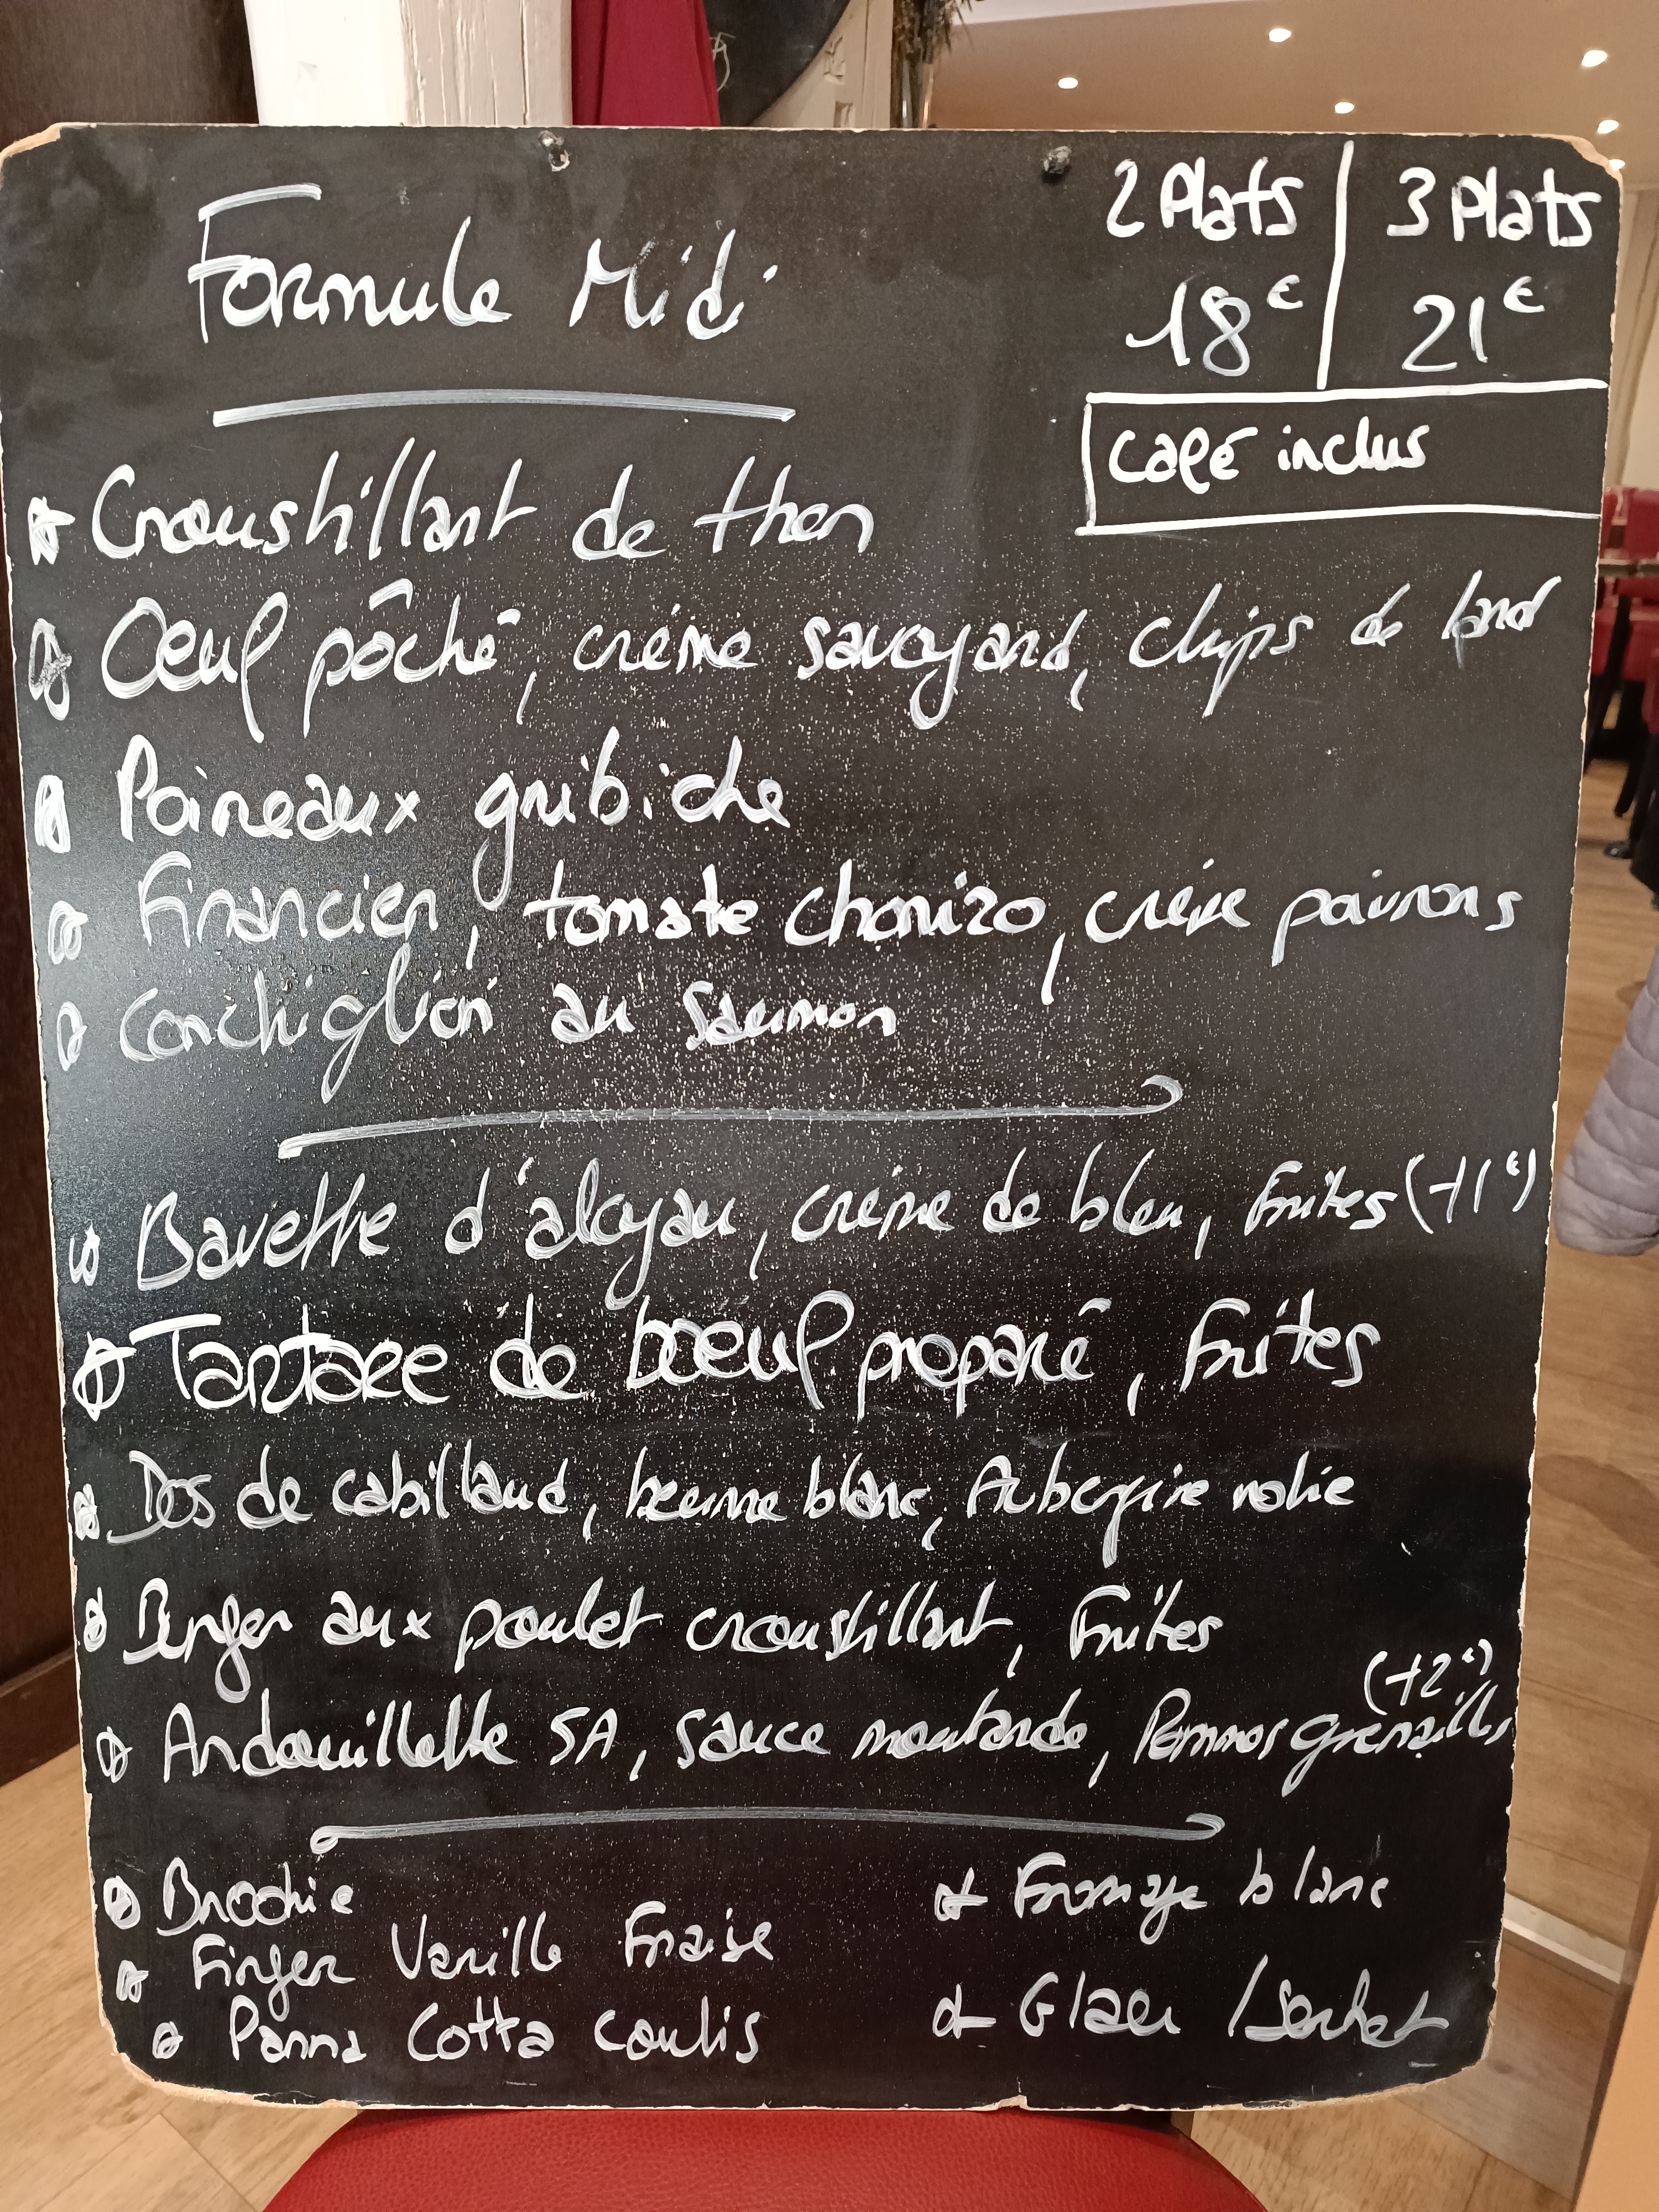 2 Plats | 3 Plats
Formule Midi
18€ | 21€
café inclus
Croustillant de thon
Oeuf pôché, crème savoyard, chips de lard
Poireaux gribiche
Financier, tomate chorizo, crème poivrons
Conchiglioni au saumon
Bavette d'aloyau, crème de bleu, Frites (+1€)
Tartare de boeuf préparé, Frites
Dos de cabillaud, beurre blanc, Aubergine rotie
Burger aux poulet croustillant, Frites
(+2€)
Andouillette 5A, sauce moutarde, Pommes grenailles
Brochie
Fromage blanc
Finger Vanille Fraise
Glace / Sorbet
Panna Cotta Coulis